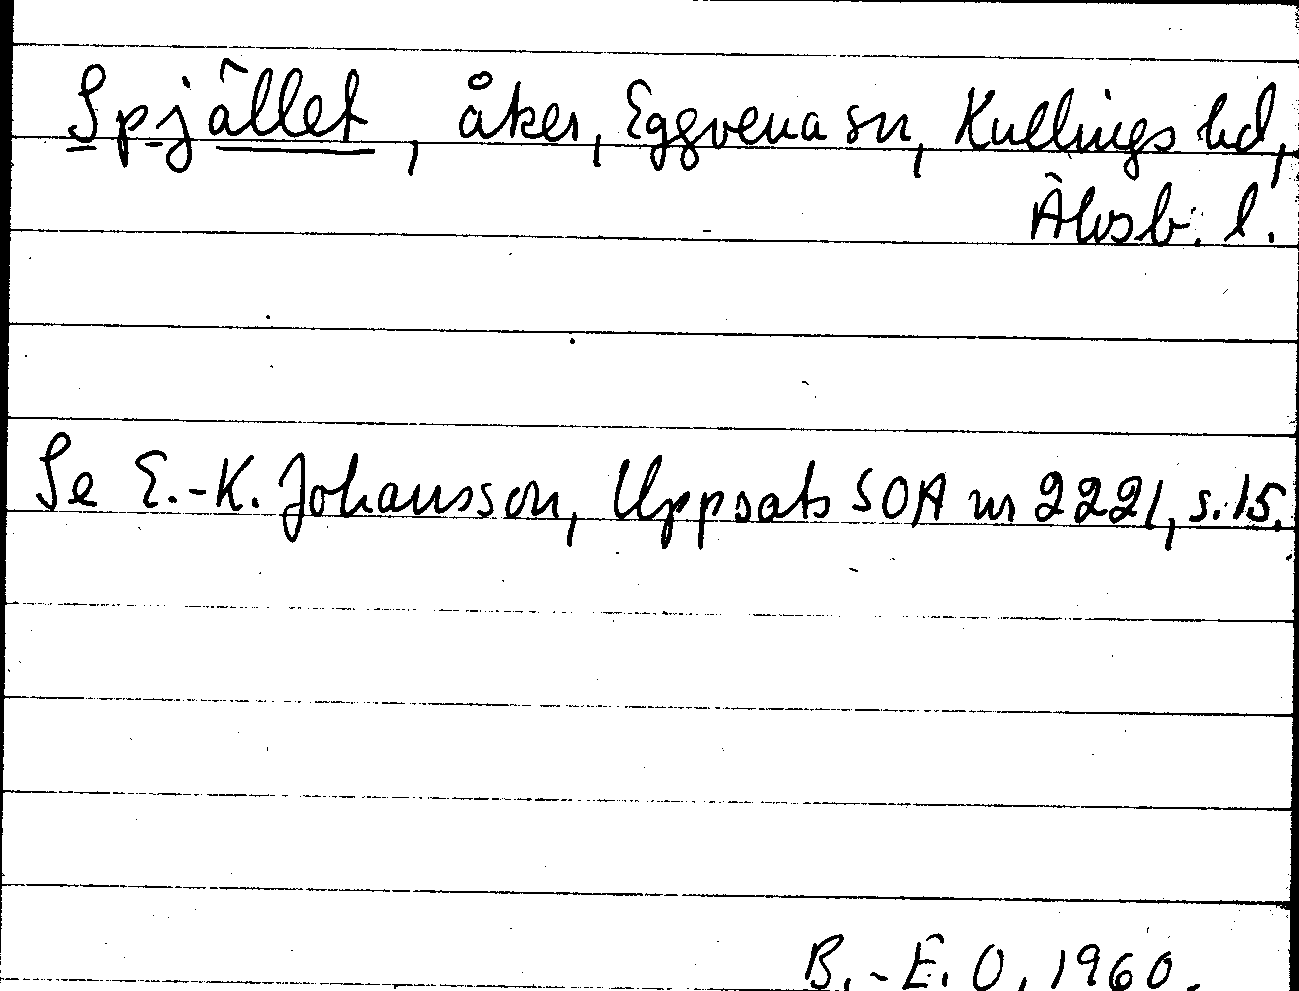 Spjället, åker, Eggvena sn, Kullings hd,
Älvsb. l.
Se E.-K. Johansson, Uppsats SOA nr 2221, s. 15.
B.-E. O. 1960.